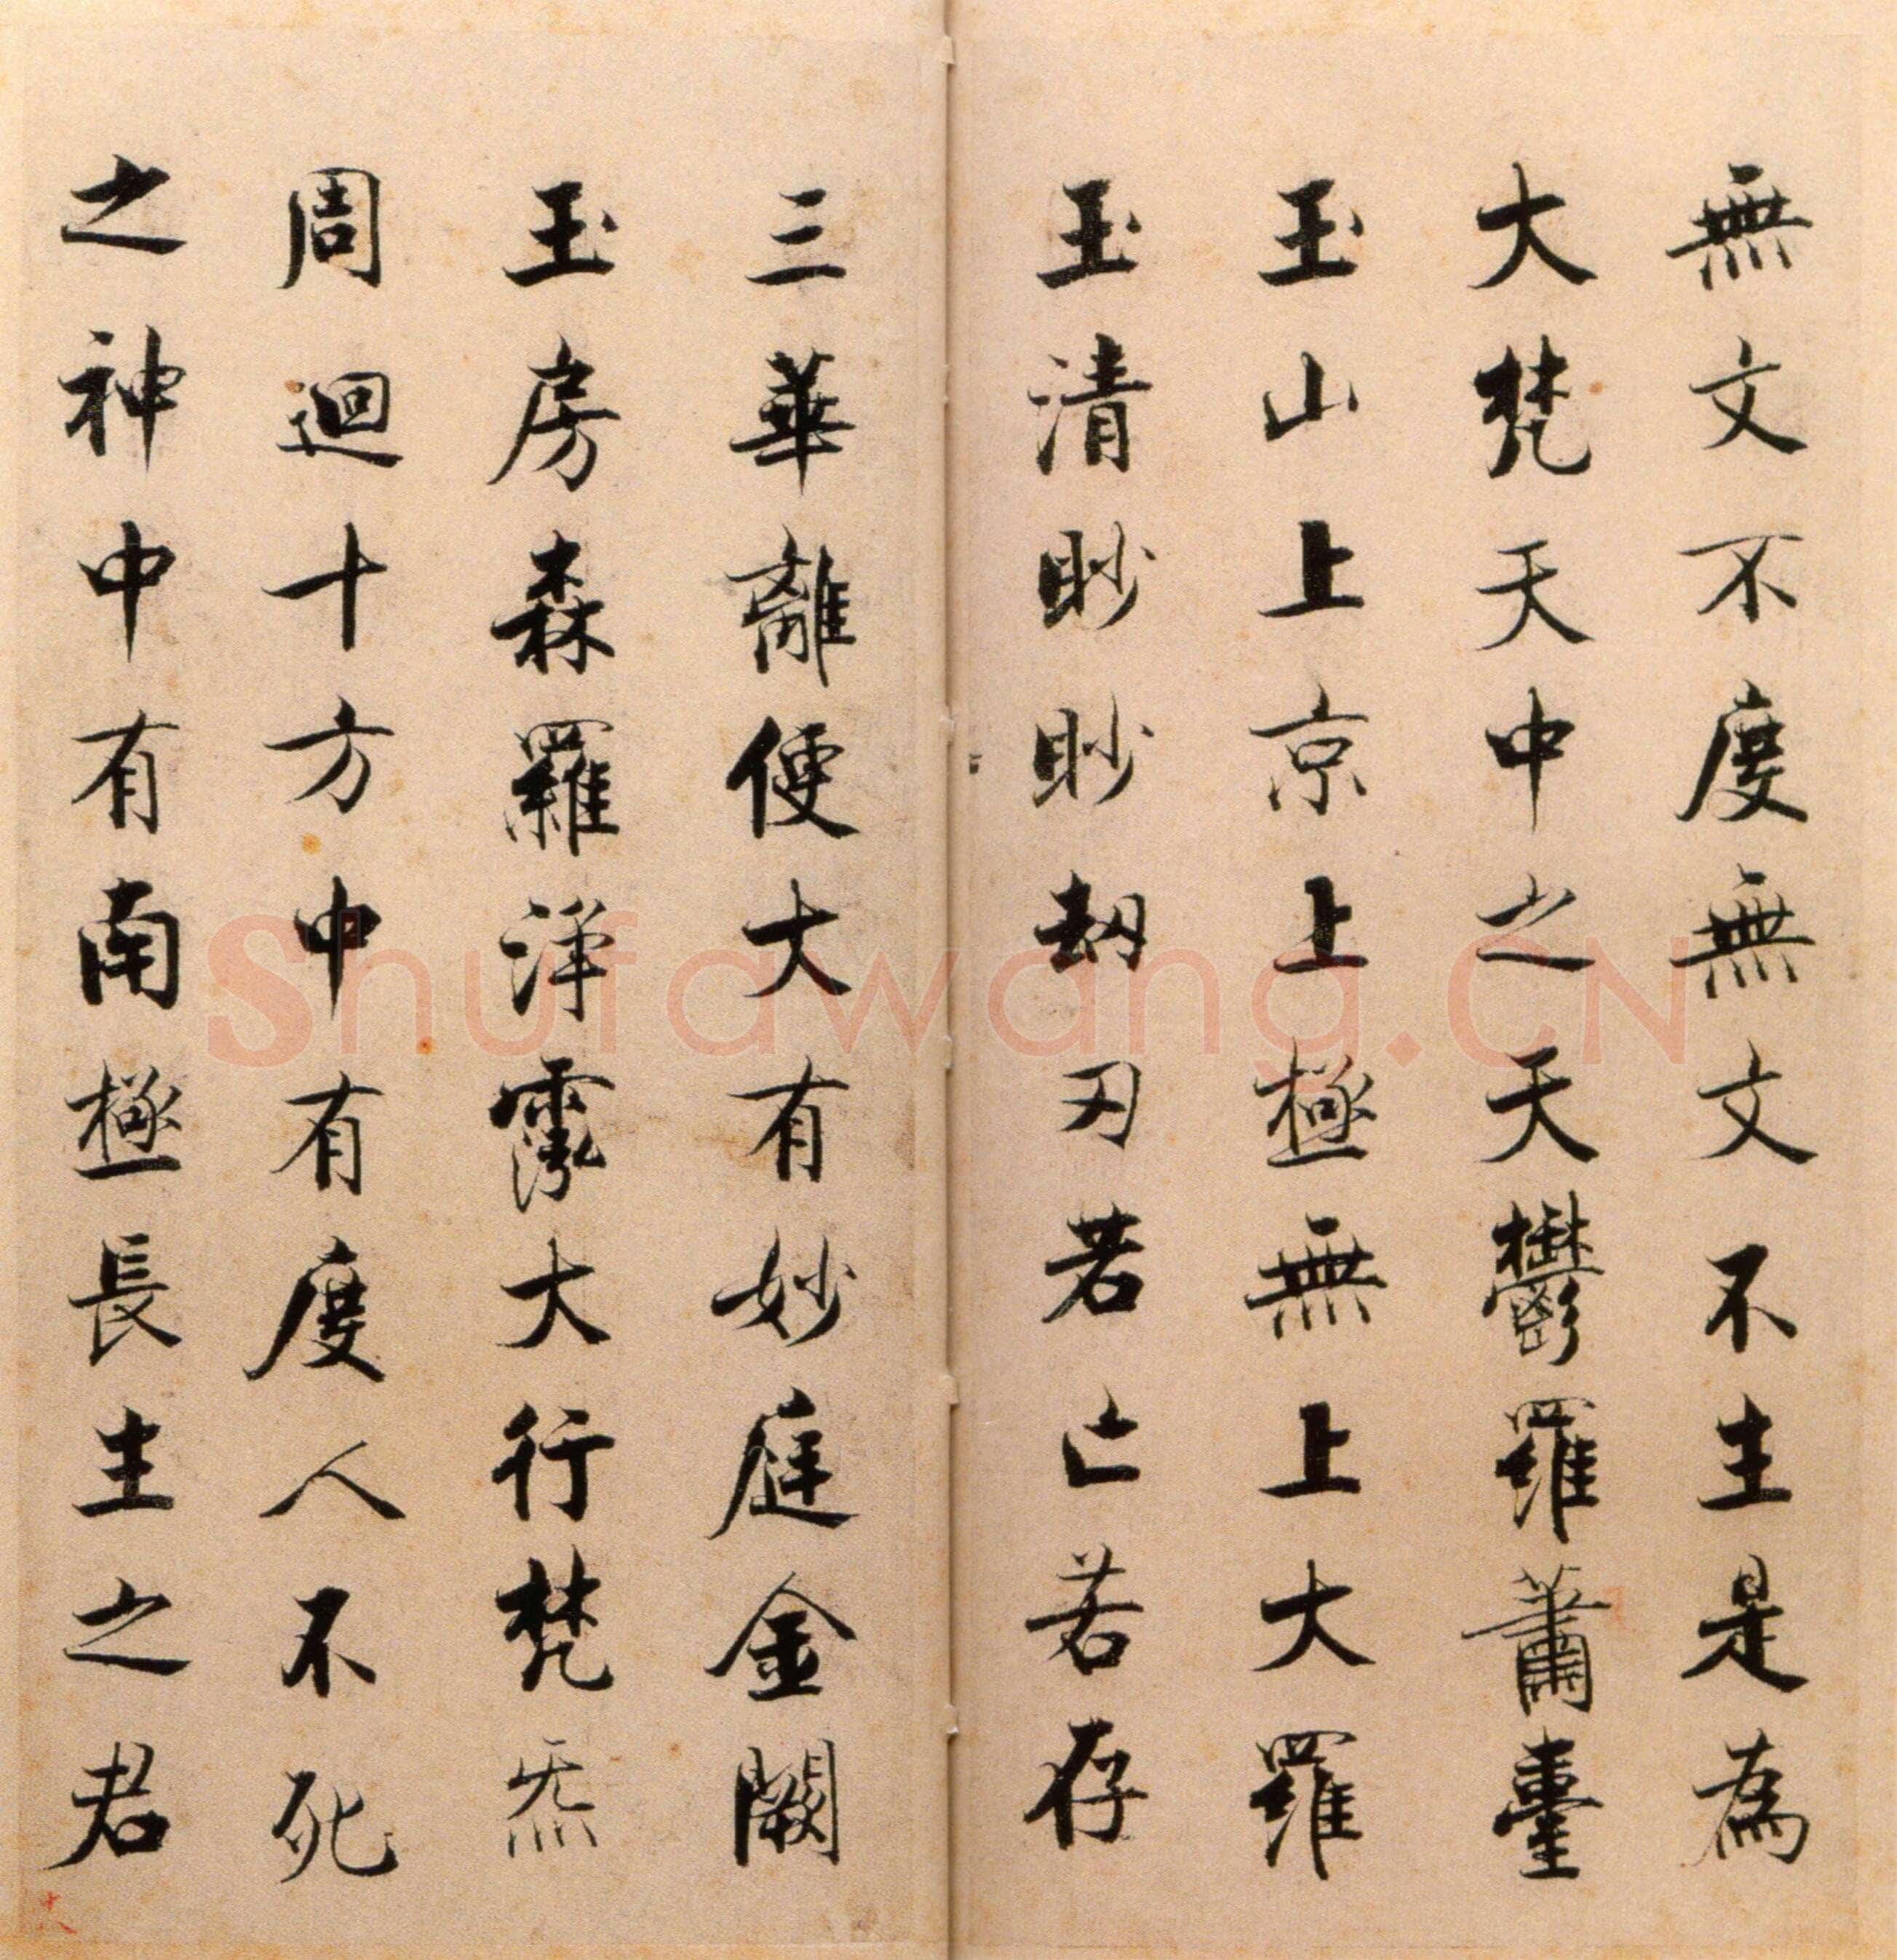 無文不度無文不生是為
大梵天中之天鬱羅蕭臺
玉山上京上極無上大羅
玉清眇眇刧刃若亡若存
三華離便大有妙庭金闕
玉房森羅淨霐大行梵炁
周迴十方中有度人不死
之神中有南極長生之君
十八
Shufawang.CN